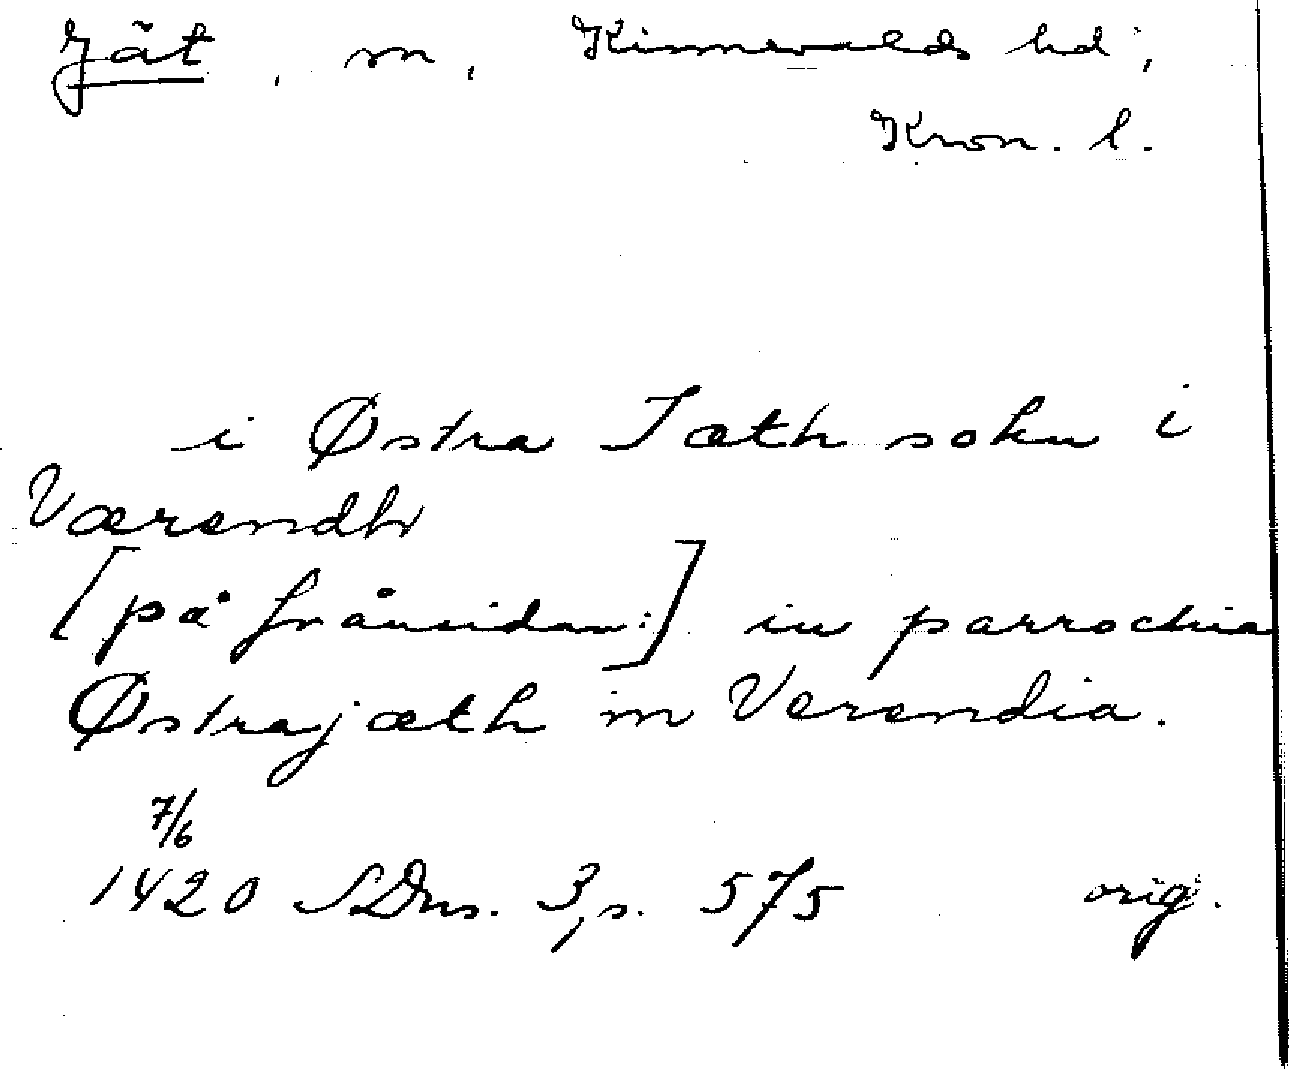 Jät, sn, Kinnevalds hd,
Kron. l.
i Østra Jæth sokn i
Værendh
[på frånsidan:] in parrochia
Østrajæth in Verendia.
7/6
1420 SDns. 3, s. 575 orig.